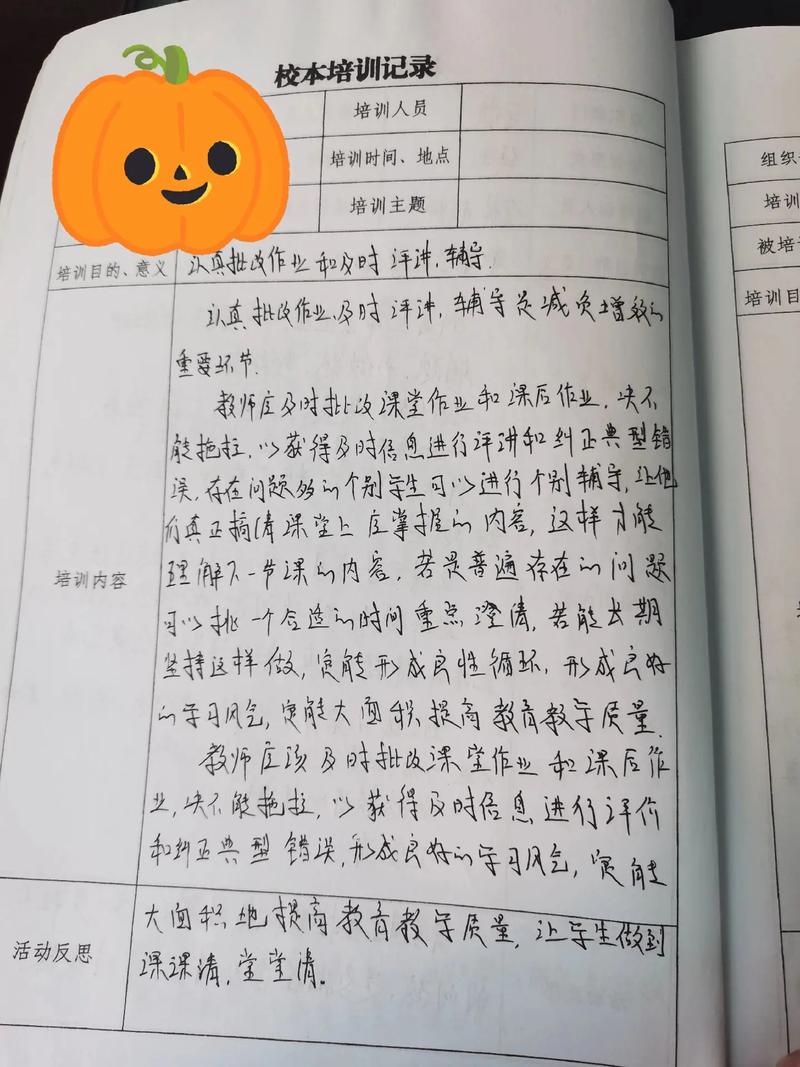 校本培训记录
培训人员
培训时间、地点
培训主题
培训目的、意义
认真批改作业和及时评讲,辅导.
培训内容
认真批改作业、及时评讲,辅导是减负增效的
重要环节.
教师应及时批改课堂作业和课后作业,决不
能拖拉,以获得及时信息进行评讲和纠正典型错
误,存在问题多的个别学生可以进行个别辅导,让他
们真正搞清课堂上应掌握的内容,这样才能
理解下一节课的内容,若是普遍存在的问题
可以挑一个合适的时间重点澄清,若能长期
坚持这样做,定能形成良性循环,形成良好
的学习风气,定能大面积提高教育教学质量.
教师应该及时批改课堂作业和课后作
业,决不能拖拉,以获得及时信息进行评价
和纠正典型错误,形成良好的学习风气,定能
活动反思
大面积地提高教育教学质量,让学生做到
课课清,堂堂清。
组织
培训
被培
培训目